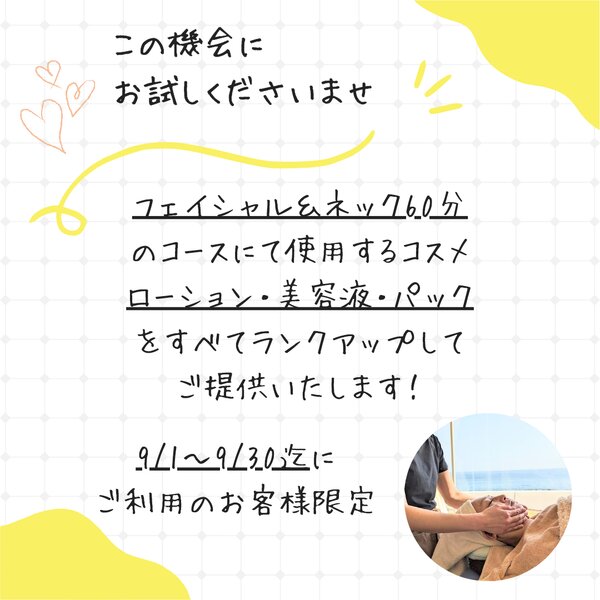 この機会に
お試しくださいませ
フェイシャル&ネック60分
のコースにて使用するコスメ
ローション・美容液・パック
をすべてランクアップして
ご提供いたします!
9/1〜9/30迄に
ご利用のお客様限定